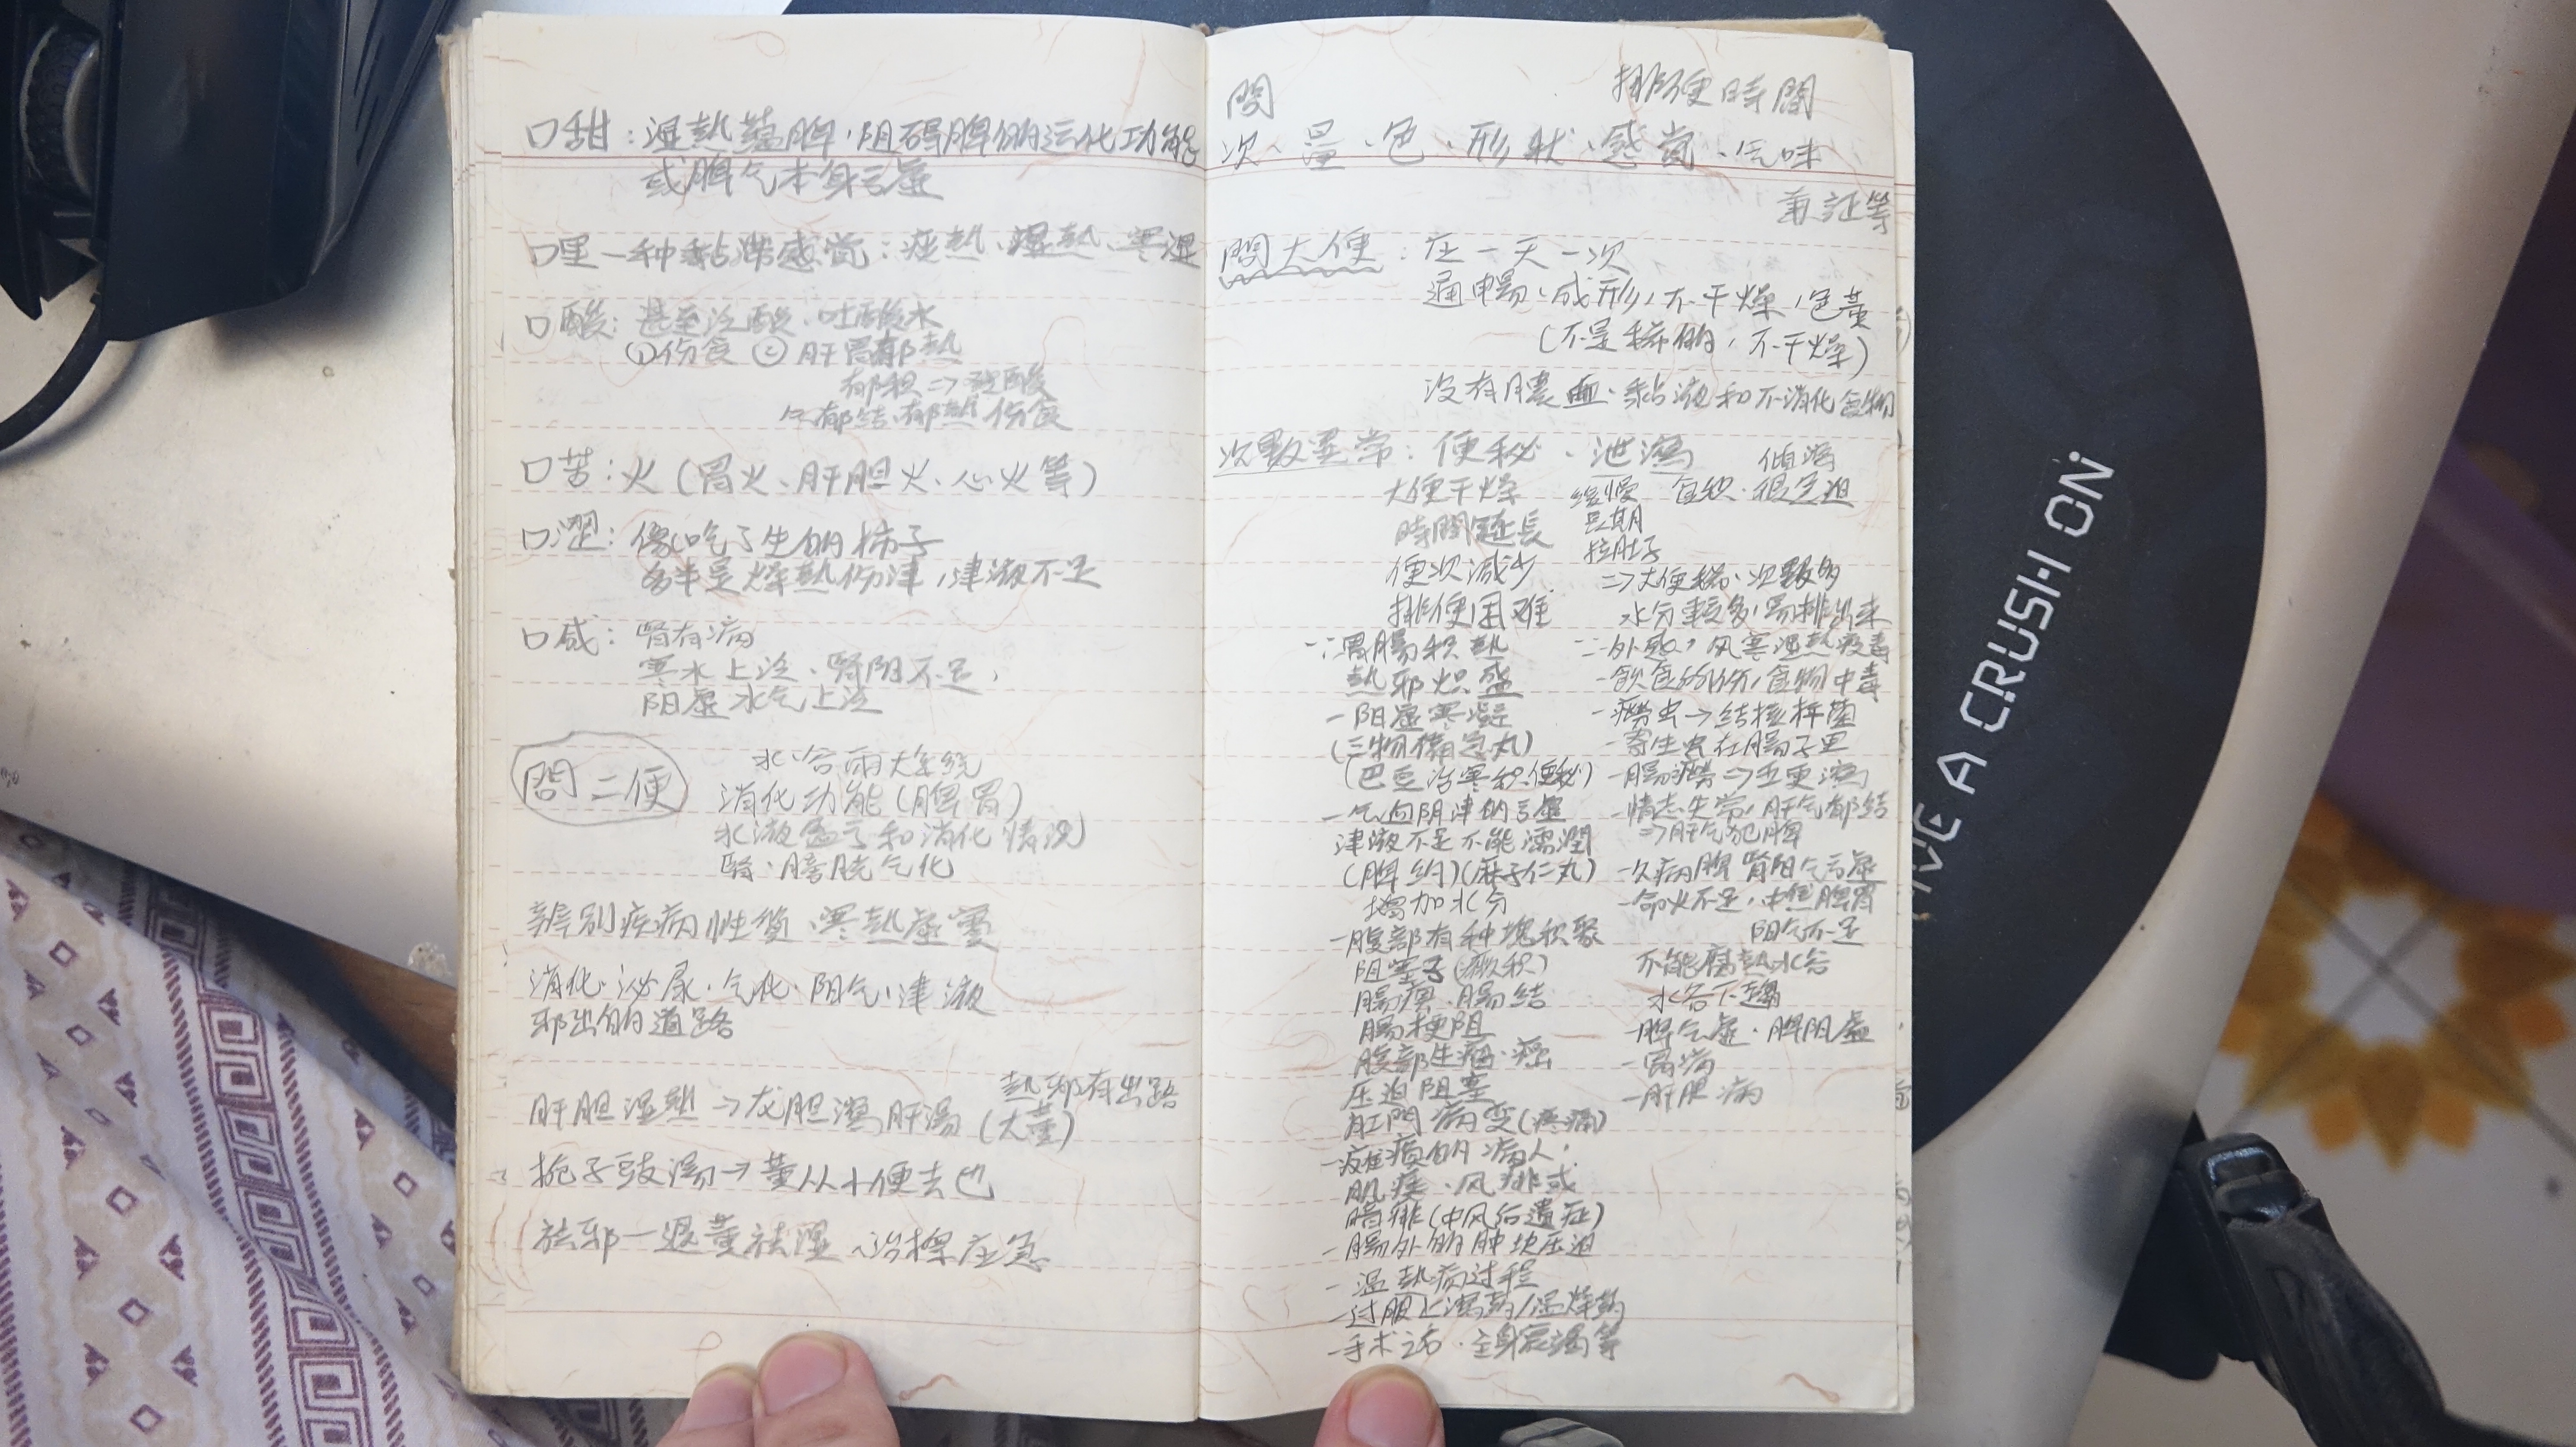 口甜：湿熱蕴脾，阻碍脾的运化功能
或脾气本身亏虚
口里一种黏滞感觉：痰熱、湿熱、寒湿
口酸：甚至泛酸、吐酸水
①伤食 ②肝胃郁熱
郁积⇒
郁结、郁熱 伤食
口苦：火（胃火、肝胆火、心火等）
口涩：像吃了生的柿子
多半是燥熱伤津，津液不足
口咸：腎有病
寒水上泛、腎阴不足，
阳虚水气上泛
問二便
水谷兩大系统
消化功能（脾胃）
水液盈亏和消化情况
腎、膀胱气化
辨别疾病性質、寒熱虚實
消化、泌尿、气化、阳气、津液
邪出的道路
熱邪有出路
肝胆湿熱→龙胆瀉肝湯（大黄）
栀子豉湯→黄从小便去也
祛邪一退黄祛湿、治標应急
問 排便時間
次、量、色、形状、感觉、气味
兼証等
問大便：应一天一次
通暢、成形，不干燥，色黄
（不是稀的，不干燥）
没有膿血、黏液和不消化食物
次數異常：便秘、泄瀉
大便干燥
時間延長
便次減少
排便困难
一：胃腸积熱
熱邪炽盛
一阳虚寒凝
（三物備急丸）
（巴豆治寒积便秘）
一气血阴津的亏虚
津液不足不能濡潤
（脾约）（麻子仁丸）
增加水分
一腹部有种塊积聚
阻塞了（癥积）
腸痹、腸結
腸梗阻
腹部生瘤、癌
压迫阻塞
肛門病变（疼痛）
一瘫瘓的病人，
肌痿、风痱或
喑痱（中风后遺症）
一腸外的肿块压迫
一温熱病过程
一过服止瀉药/温燥药
一手术之后、全身衰竭等
傾瀉
缓慢 食积、很急迫
長期
拉肚子
⇒大便稀、次數多
水分較多，易排出来
一：外感，风寒湿熱疫毒
一飲食所伤，食物中毒
一癆虫→结核杆菌
一寄生虫在腸子里
一腸癆→五更瀉
一情志失常，肝气郁结
⇒肝气犯脾
一久病脾腎阳气亏虚
一命火不足，中焦脾胃
阳气不足
不能腐熟水谷
水谷下趨
一脾气虚、脾阴虚
一胃病
一肝胆病
A CRUSH ON